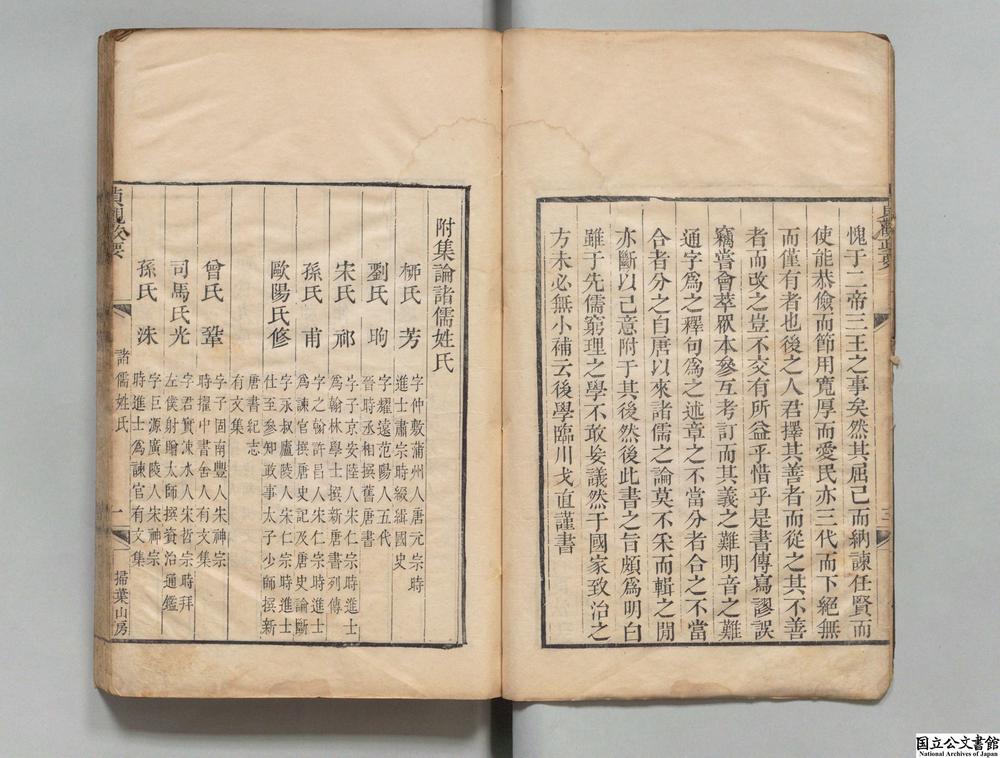 愧于二帝三王之事矣然其屈己而納諫任賢而
使能恭儉而節用寬厚而愛民亦三代而下絕無
而僅有者也後之人君擇其善者而從之其不善
者而改之豈不交有所益乎惜乎是書傳寫謬誤
竊嘗會萃眾本參互考訂而其義之難明音之難
通字為之釋句為之述章之不當分者合之不當
合者分之自唐以來諸儒之論莫不采而輯之閒
亦斷以己意附于其後然後此書之旨頗為明白
雖于先儒窮理之學不敢妄議然于國家致治之
方未必無小補云後學臨川戈直謹書
附集論諸儒姓氏
柳氏 芳 字仲敷蒲州人唐元宗時
進士肅宗時綴緝國史
劉氏 昫 字耀遠范陽人五代
晉時丞相撰舊唐書
宋氏 祁 字子京安陸人朱仁宗時進士
為翰林學士撰新唐書列傳
孫氏 甫 字之翰許昌人宋仁宗時進士
為諫官撰唐史記及唐史論斷
歐陽氏修 字永叔廬陵人宋仁宗時進士
仕至參知政事太子少師撰新
唐書紀志
有文集
曾氏 鞏 字子固南豐人朱神宗
時擢中書舍人有文集
司馬氏光 字君實涑水人宋哲宗時拜
左僕射贈太師撰資治通鑑
孫氏 洙 字巨源廣陵人宋神宗
時進士為諫官有文集
貞觀政要
諸儒姓氏
一
掃葉山房
国立公文書館
National Archives of Japan